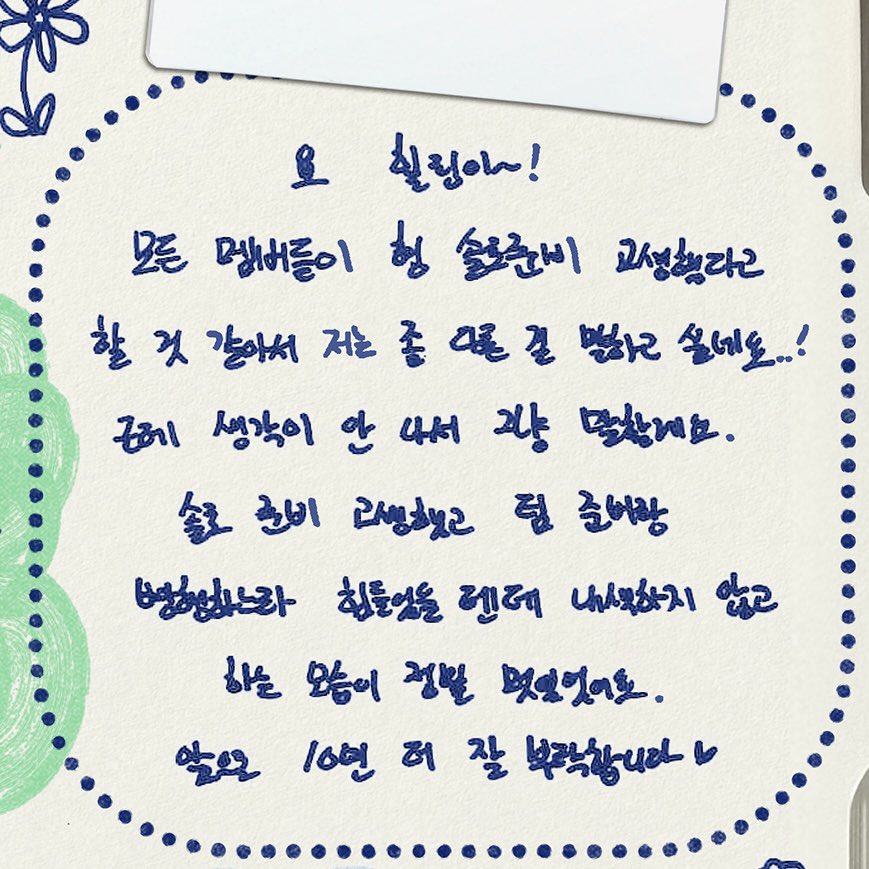 요 힐링아~!
모든 멤버들이 형 솔로준비 고생했다고
할 것 같아서 저는 좀 다른 걸 말하고 싶네요..!
근데 생각이 안 나서 그냥 말할게요.
솔로 준비 고생했고 팀 준비랑
병행하느라 힘들었을 텐데 내색하지 않고
하는 모습이 정말 멋있었어요.
앞으로 10년 더 잘 부탁합니다♥